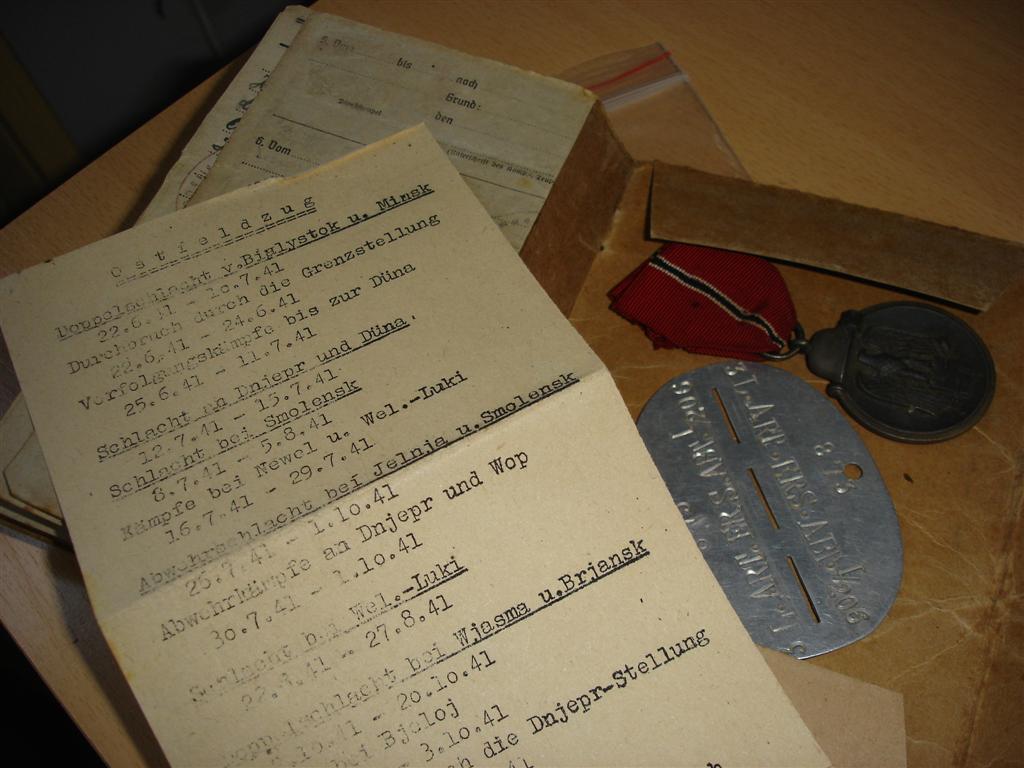 5. Vom
bis
nach
Grund:
den
6. Vom
Ostfeldzug
Doppelschlacht v.Bialystok u. Minsk
22.6.41 - 10.7.41
Durchbruch durch die Grenzstellung
22.6.41 - 24.6.41
Verfolgungskämpfe bis zur Düna
25.6.41 - 11.7.41
Schlacht an Dnjepr und Düna.
12.7.41 - 15.7.41
Schlacht bei Smolensk
8.7.41 - 5.8.41
Kämpfe bei Newel u. Wel.-Luki
16.7.41 - 29.7.41
Abwehrschlacht bei Jelnja u.Smolensk
26.7.41 - 1.10.41
Abwehrkämpfe an Dnjepr und Wop
30.7.41 - 1.10.41
Schlacht bei Wel.-Luki
22.8.41 - 27.8.41
bei Wjasma u.Brjansk
- 20.10.41
bei Bjeloj
3.10.41
die Dnjepr-Stellung
873